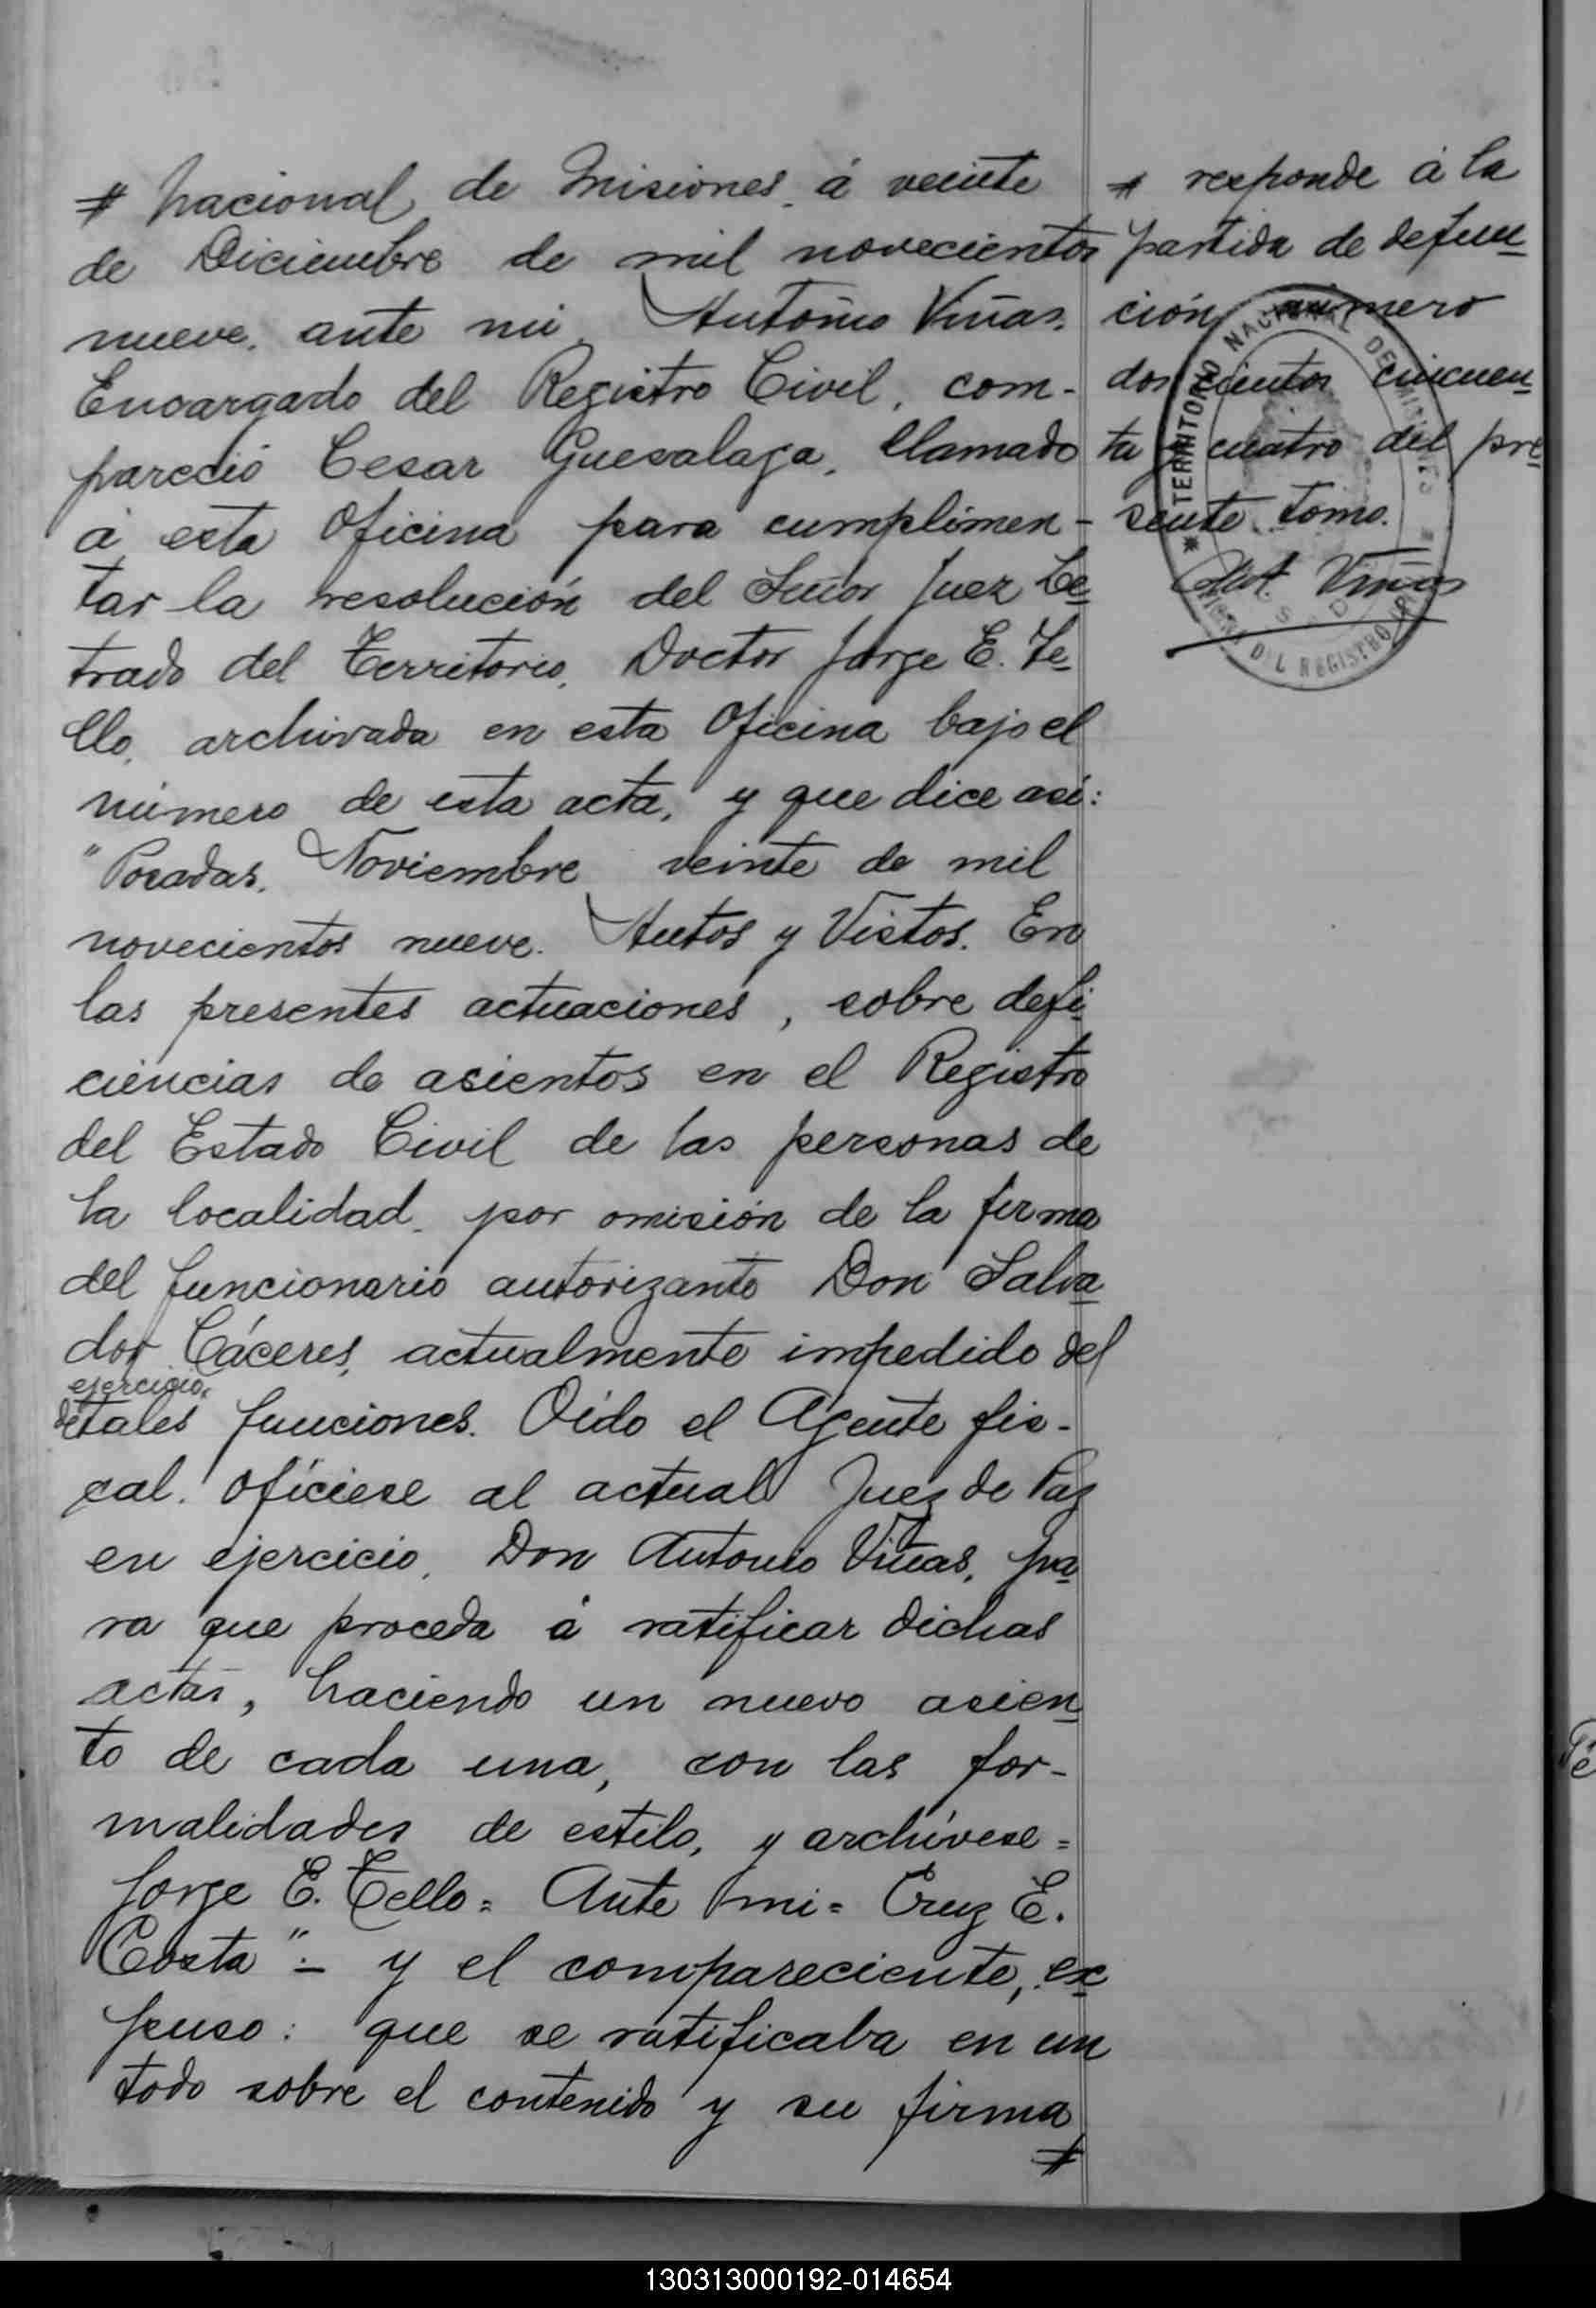 # nacional de Misiones á veinte
de Diciembre de mil novecientos
nueve, ante mi, Antonio Viñas,
Encargado del Registro Civil, com-
pareció Cesar Guesalaga, llamado
á esta Oficina para cumplimen-
tar la resolución del Señor Juez Le-
trado del Territorio, Doctor Jorge E. Te-
llo, archivada en esta Oficina bajo el
número de esta acta, y que dice asi:
"Posadas, Noviembre veinte de mil
novecientos nueve. Autos y Vistos. En
las presentes actuaciones, sobre defi-
ciencias de asientos en el Registro
del Estado Civil de las personas de
la localidad, por omisión de la firma
del funcionario autorizante Don Salva-
dor Cáceres, actualmente impedido del
ejercicio
de tales funciones. Oído el Agente fis-
cal. Ofíciese al actual Juez de Paz
en ejercicio, Don Antonio Viñas, pa-
ra que proceda á ratificar dichas
actas, haciendo un nuevo asien-
to de cada una, con las for-
malidades de estilo, y archívese =
Jorge E. Tello = Ante mi = Cruz E.
Costa" .- y el compareciente, ex-
puso: que se ratificaba en un
todo sobre el contenido y su firma
#
# responde á la
partida de defun-
ción número
doscientos cincuen-
ta y cuatro del pre-
sente tomo.
Ant. Viñas
* TERRITORIO NACIONAL DE MISIONES
DEL REGISTRO
130313000192-014654